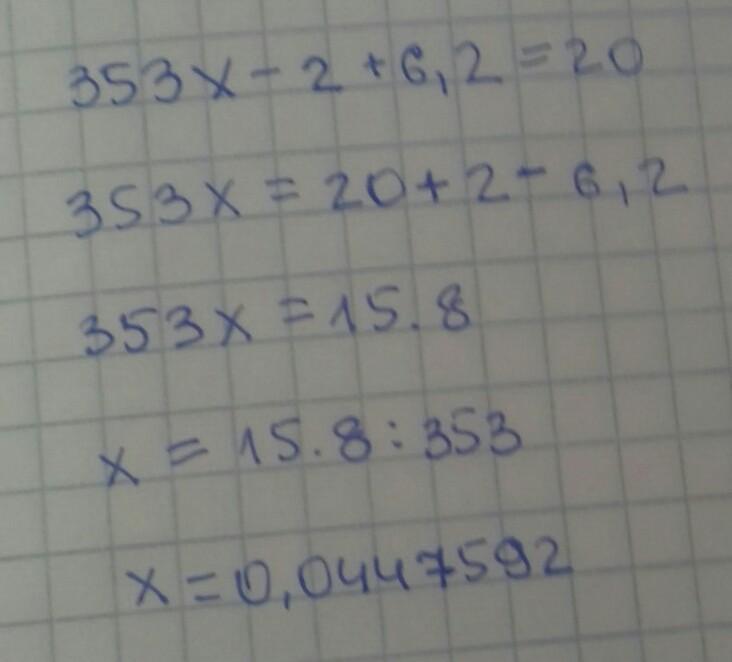 353x - 2 + 6,2 = 20
353x = 20 + 2 - 6,2
353x = 15.8
x = 15.8 : 353
x = 0,0447592